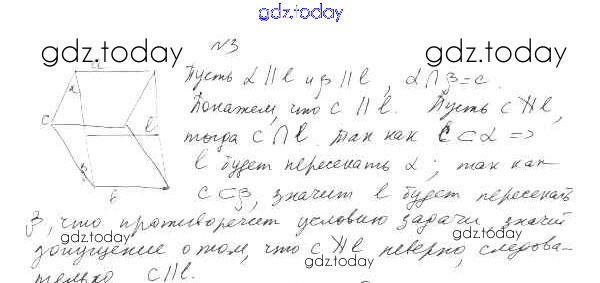 gdz.today
N3
gdz.today
gdz.today
Пусть α || l и β || l, α ∩ β = c.
Покажем, что c || l. Пусть c ∦ l,
тогда c ∩ l. Так как c ⊂ α =>
l будет пересекать α; так как
c ⊂ β, значит l будет пересекать
β, что противоречит условию задачи, значит
допущение о том, что c ∦ l неверно, следова-
тельно c || l.
gdz.today
gdz.today
gdz.today
a
α
c
l
β
b